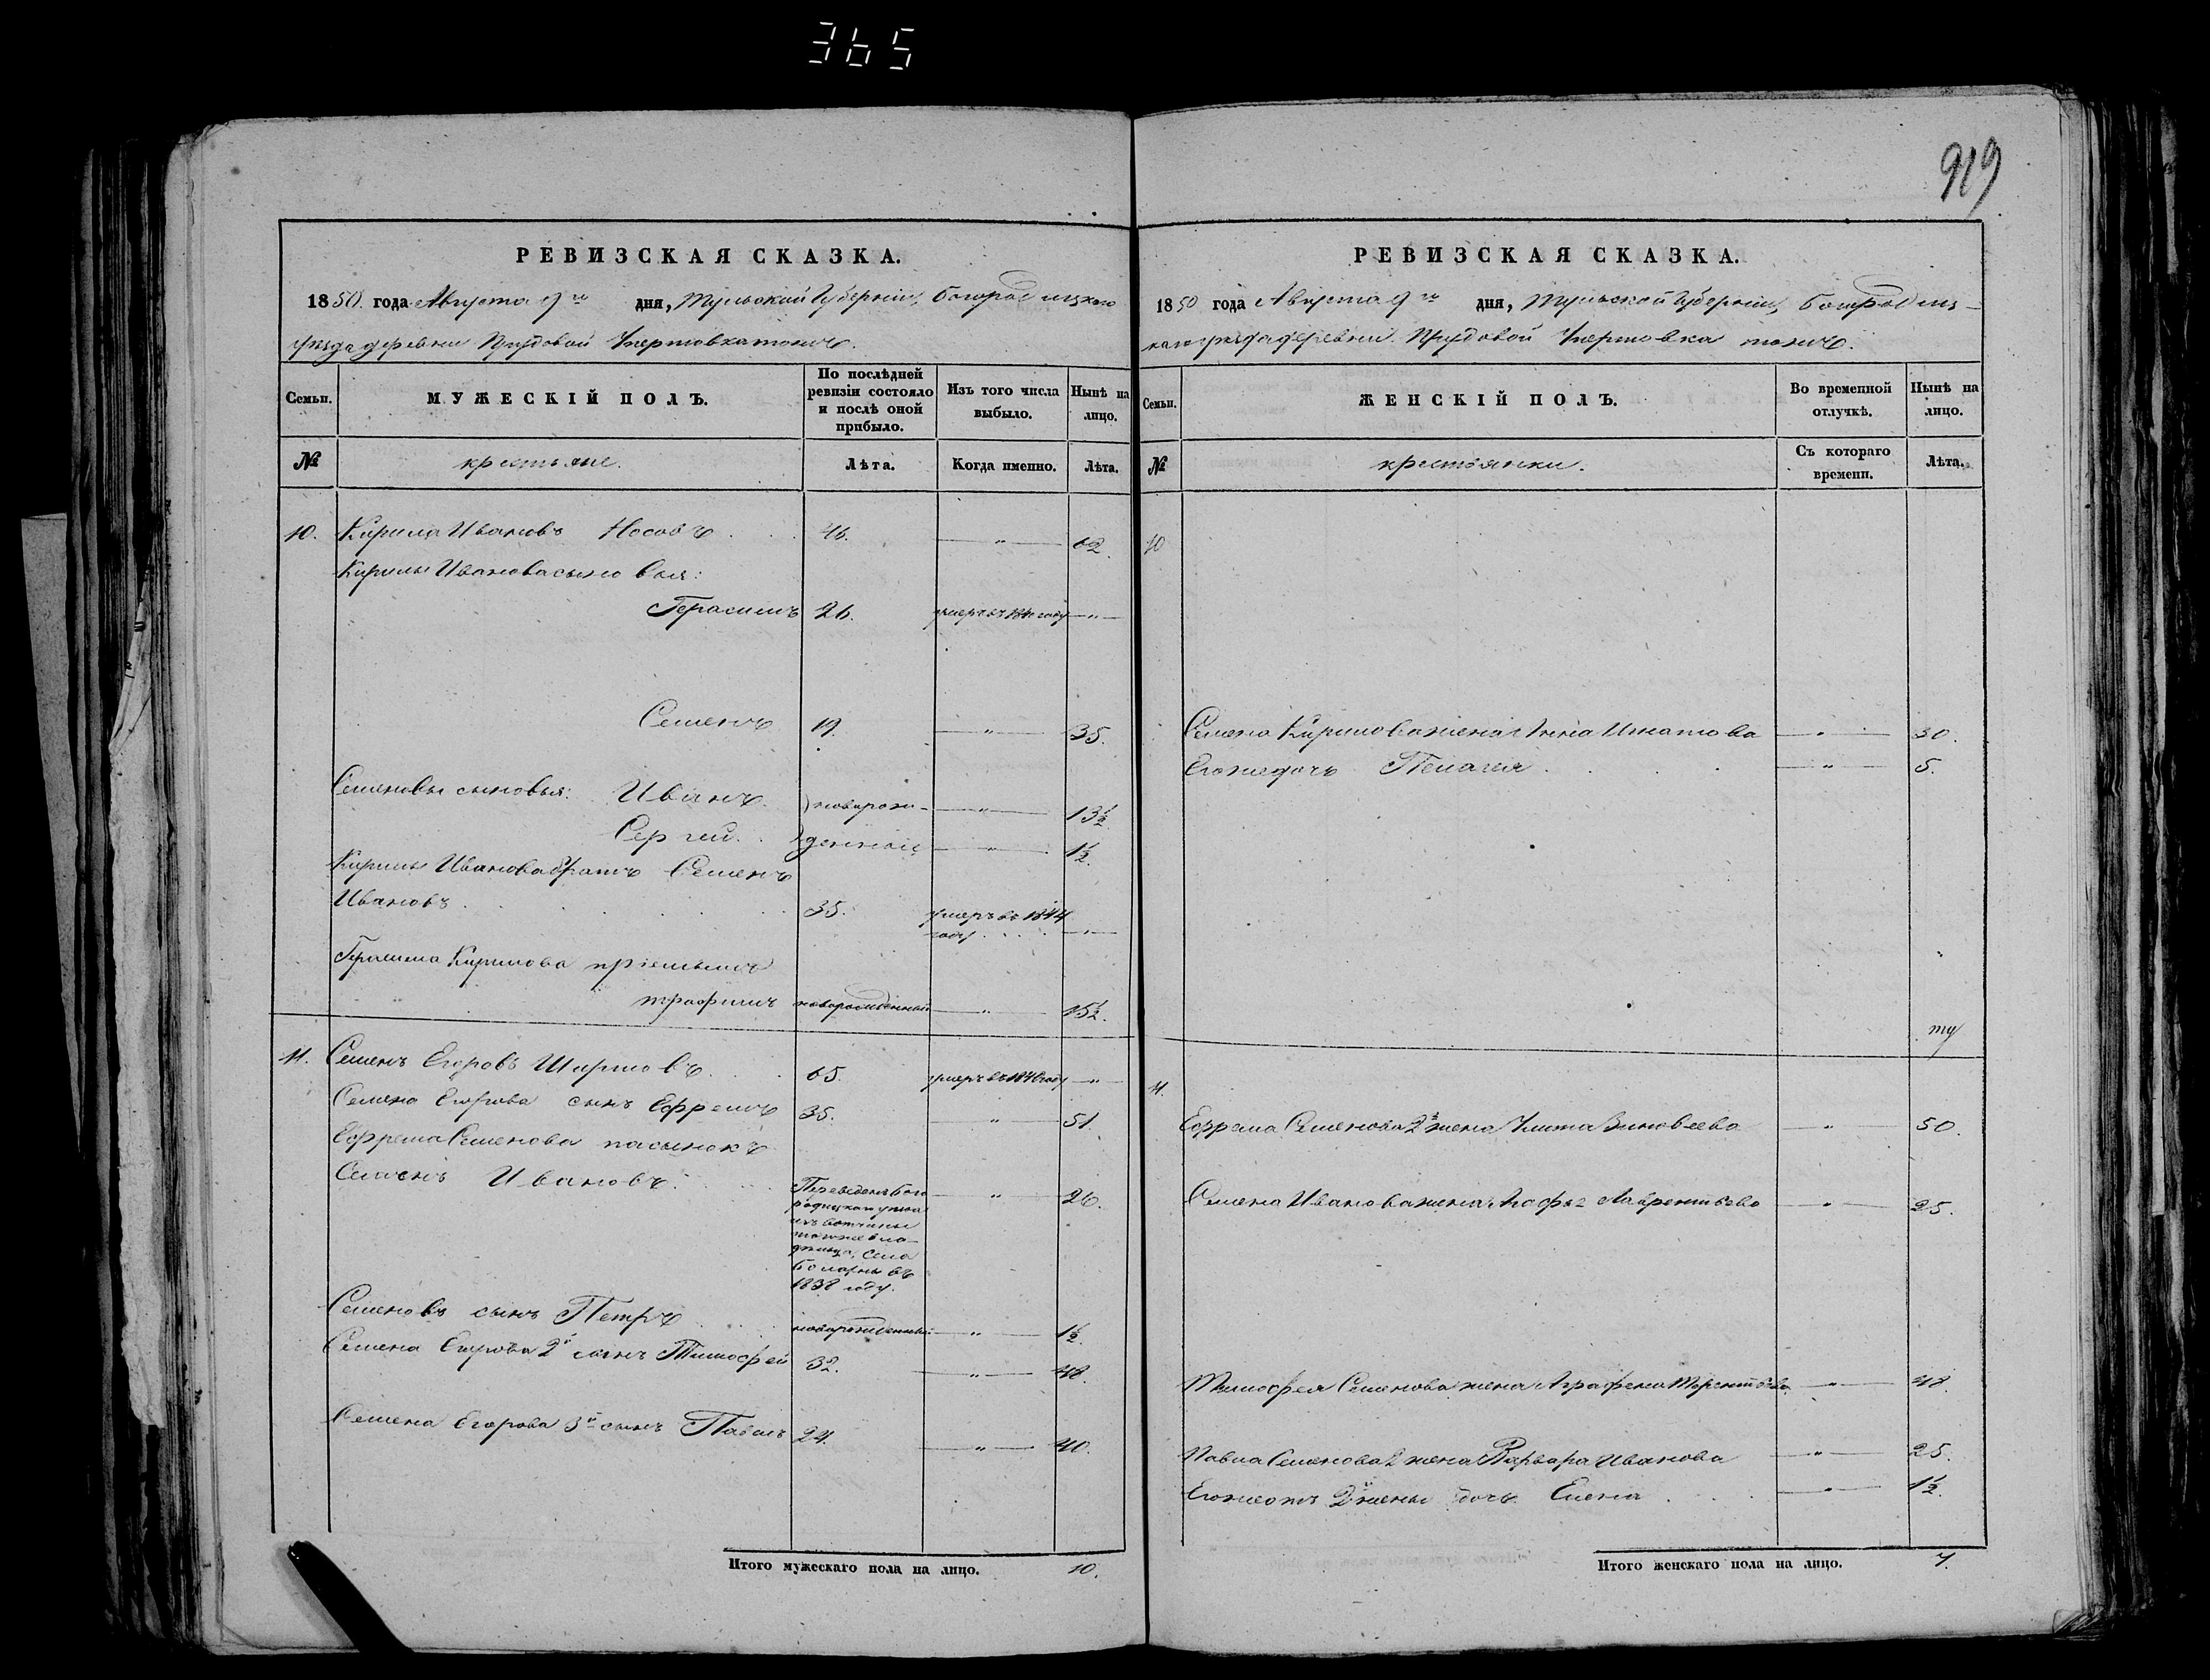 365
919
РЕВИЗСКАЯ СКАЗКА.
1850 года Августа 9го дня, Тульской Губернiи, Богородицкаго
уѣзда деревни Прудовой Чертовка тожъ.
Семьи.
МУЖЕСКІЙ ПОЛЪ.
По послѣдней ревизіи состояло и послѣ оной прибыло.
Изъ того числа выбыло.
Нынѣ на лицо.
№
крестьяне.
Лѣта.
Когда именно.
Лѣта.
10. Кирила Ивановъ Носовъ 46. — " — 62.
Кирилы Иванова сыновья:
Герасимъ 26. умеръ въ году — " —
Семенъ 19. — " — 35.
Семеновы сыновья: Иванъ } новорож- — " — 13½
Сергей } денные — " — 1½.
Кирилы Иванова братъ Семенъ
Ивановъ 35. умеръ въ 1844
году — " —
Герасима Кирилова прiемышъ
трофимъ новорожденный — " — 15½.
11. Семенъ Егоровъ 65. умеръ въ году — " —
Семена Егорова сынъ Ефремъ 35. — " — 51.
Ефрема Семенова пасынокъ
Семенъ Ивановъ. Переведенъ Бого — " — 26.
родицкаго уѣзда
изъ вотчины
тогоже вла-
дѣльца, села
въ
1838 году.
Семеновъ сынъ Петръ новорожденный — " — 1½.
Семена Егорова 2й сынъ Тимофей 32. — " — 48.
Семена Егорова 3й сынъ Павелъ 24. — " — 40.
Итого мужескаго пола на лицо. 10.
РЕВИЗСКАЯ СКАЗКА.
1850 года Августа 9го дня, Тульской Губернiи, Богородиц-
каго уѣзда деревни Прудовой Чертовка тожъ.
Семьи.
ЖЕНСКІЙ ПОЛЪ.
Во временной отлучкѣ.
Нынѣ на лицо.
№
крестьянки.
Съ котораго времени.
Лѣта.
10
Семена Кирилова жена Анна Игнатова — " — 30.
Егоже дочь Пелагея — " — 5.
11.
Ефрема Семенова 2я жена Улита Зиновеева — " — 50.
Семена Иванова жена Лаврентьева — " — 25.
Тимофея Семенова жена Аграфена Терентьева — " — 48.
Павла Семенова 2 жена Варвара Иванова — " — 25.
Егоже отъ 2й жены дочь Елена — " — 1½.
Итого женскаго пола на лицо. 7.